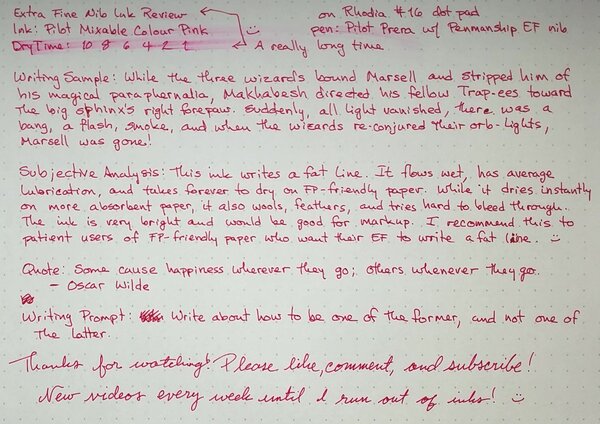 Extra Fine Nib Ink Review
on Rhodia #16 dot pad
Ink: Pilot Mixable Colour Pink :)
pen: Pilot Prera w/ Penmanship EF nib
Dry Time: 10 8 6 4 2 1 ← A really long time
Writing Sample: While the three wizards bound Marsell and stripped him of
his magical paraphernalia, Makhabesh directed his fellow Trap-ees toward
the big sphinx's right forepaw. Suddenly, all light vanished, there was a
bang, a flash, smoke, and when the wizards re-conjured their orb-lights,
Marsell was gone!
Subjective Analysis: This ink writes a fat line. It flows wet, has average
lubrication, and takes forever to dry on FP-friendly paper. While it dries instantly
on more absorbent paper, it also wools, feathers, and tries hard to bleed through.
The ink is very bright and would be good for markup. I recommend this to
patient users of FP-friendly paper who want their EF to write a fat line. :)
Quote: Some cause happiness wherever they go; others whenever they go.
- Oscar Wilde
Writing Prompt: Write about how to be one of the former, and not one of
the latter.
Thanks for watching! Please like, comment, and subscribe!
New videos every week until I run out of inks! :)